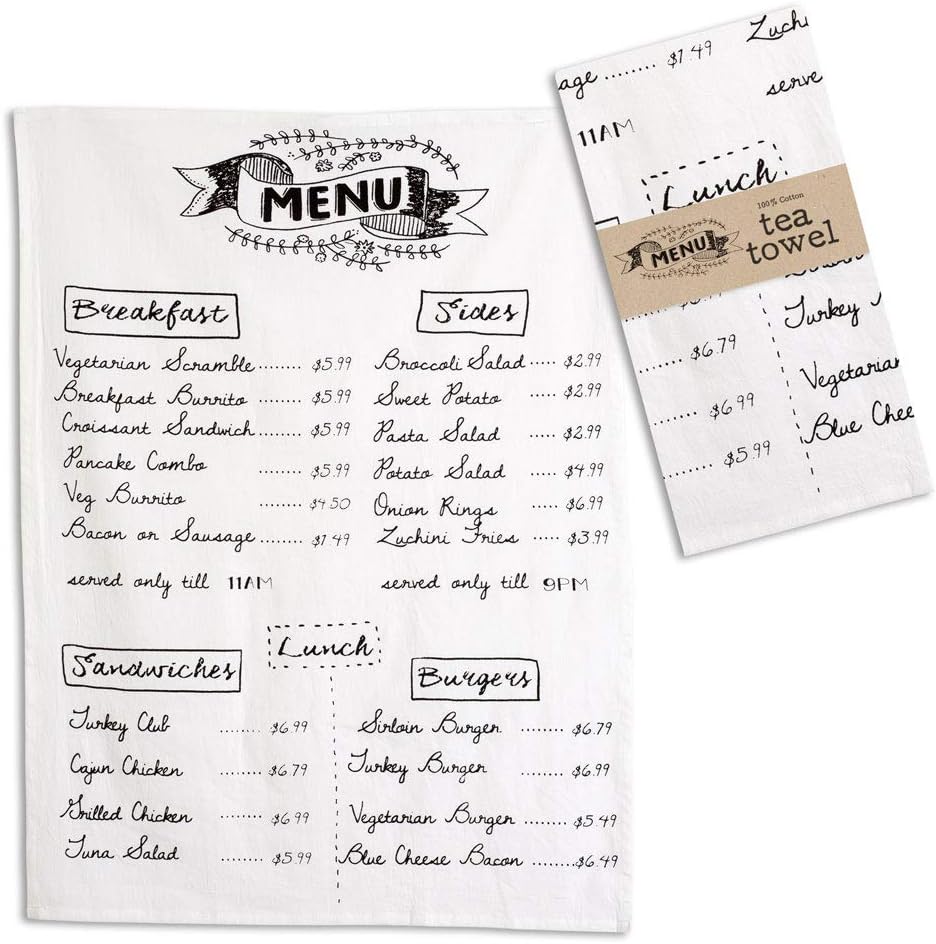 MENU
Breakfast
Vegetarian Scramble ........ $5.99
Breakfast Burrito ........ $5.99
Croissant Sandwich ........ $5.99
Pancake Combo ........ $5.99
Veg Burrito ........ $4.50
Bacon or Sausage ........ $1.49
served only till 11AM
Sides
Broccoli Salad ..... $2.99
Sweet Potato ..... $2.99
Pasta Salad ..... $2.99
Potato Salad ..... $4.99
Onion Rings ..... $6.99
Zuchini Fries ..... $3.99
served only till 9PM
Lunch
Sandwiches
Turkey Club ........ $6.99
Cajun Chicken ........ $6.79
Grilled Chicken ........ $6.99
Tuna Salad ........ $5.99
Burgers
Sirloin Burger ........ $6.79
Turkey Burger ........ $6.99
Vegetarian Burger ........ $5.49
Blue Cheese Bacon ........ $6.49
age ........ $1.49
Zuchi
serve
11AM
Lunch
MENU
100% Cotton
tea
towel
Turkey
...... $6.79
Vegetarian
....... $6.99
Blue Chee
........ $5.99